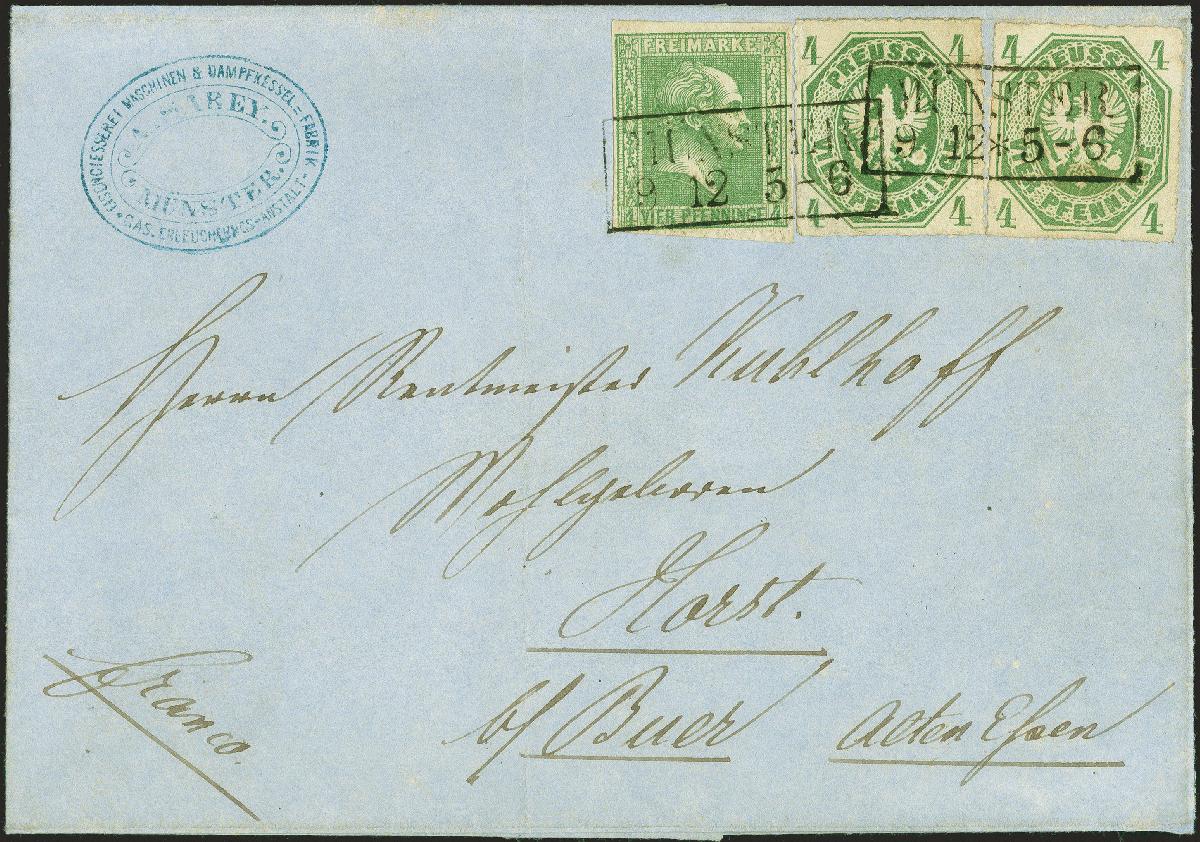 EISENGIESSEREI MASCHINEN & DAMPFKESSEL=FABRIK
GAS. ERLEUCHTUNGS=ANSTALT
MÜNSTER.
FREIMARKE
4 VIER PFENNINGE 4
MÜNSTER
9 12 5-6
4 4
PREUSSEN
4 4
4 4
PREUSSEN
VIER PFENNINGE
4 4
MÜNSTER
9 12 * 5-6
Herrn Rentmeister Kuhlhoff
Wohlgeboren
Horst.
b/ Buer
Alten Essen
Franco.